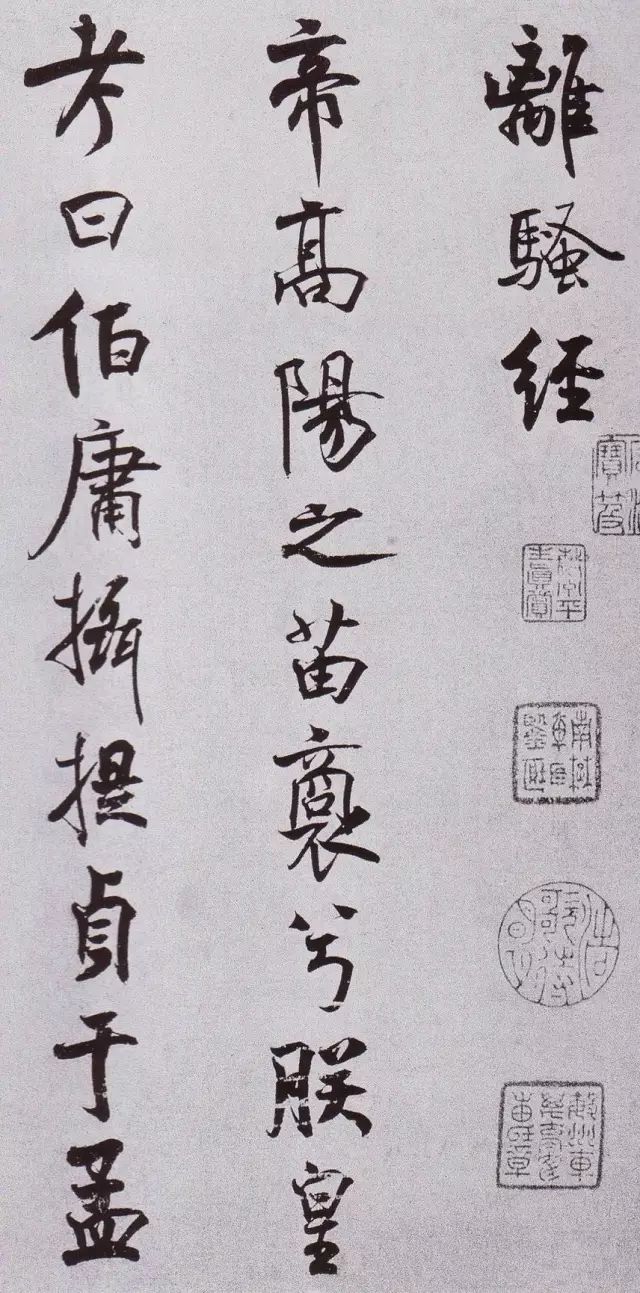 離騷經
帝高陽之苗裔兮朕皇
考曰伯庸攝提貞于孟